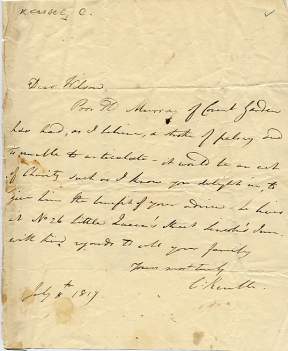 Kemble, C.
Dear Wilson,
Poor Mr Murray of Covent Garden
has had, as I believe, a stroke of palsey and
is unable to articulate - it would be an act
of Charity such as I know you delight in, to
give him the benefit of your advice - he lives
at No 26 Little Queen's Street Lincoln's Inn.
with kind regards to all your family
Yours most truly
C. Kemble.
July 8th 1817